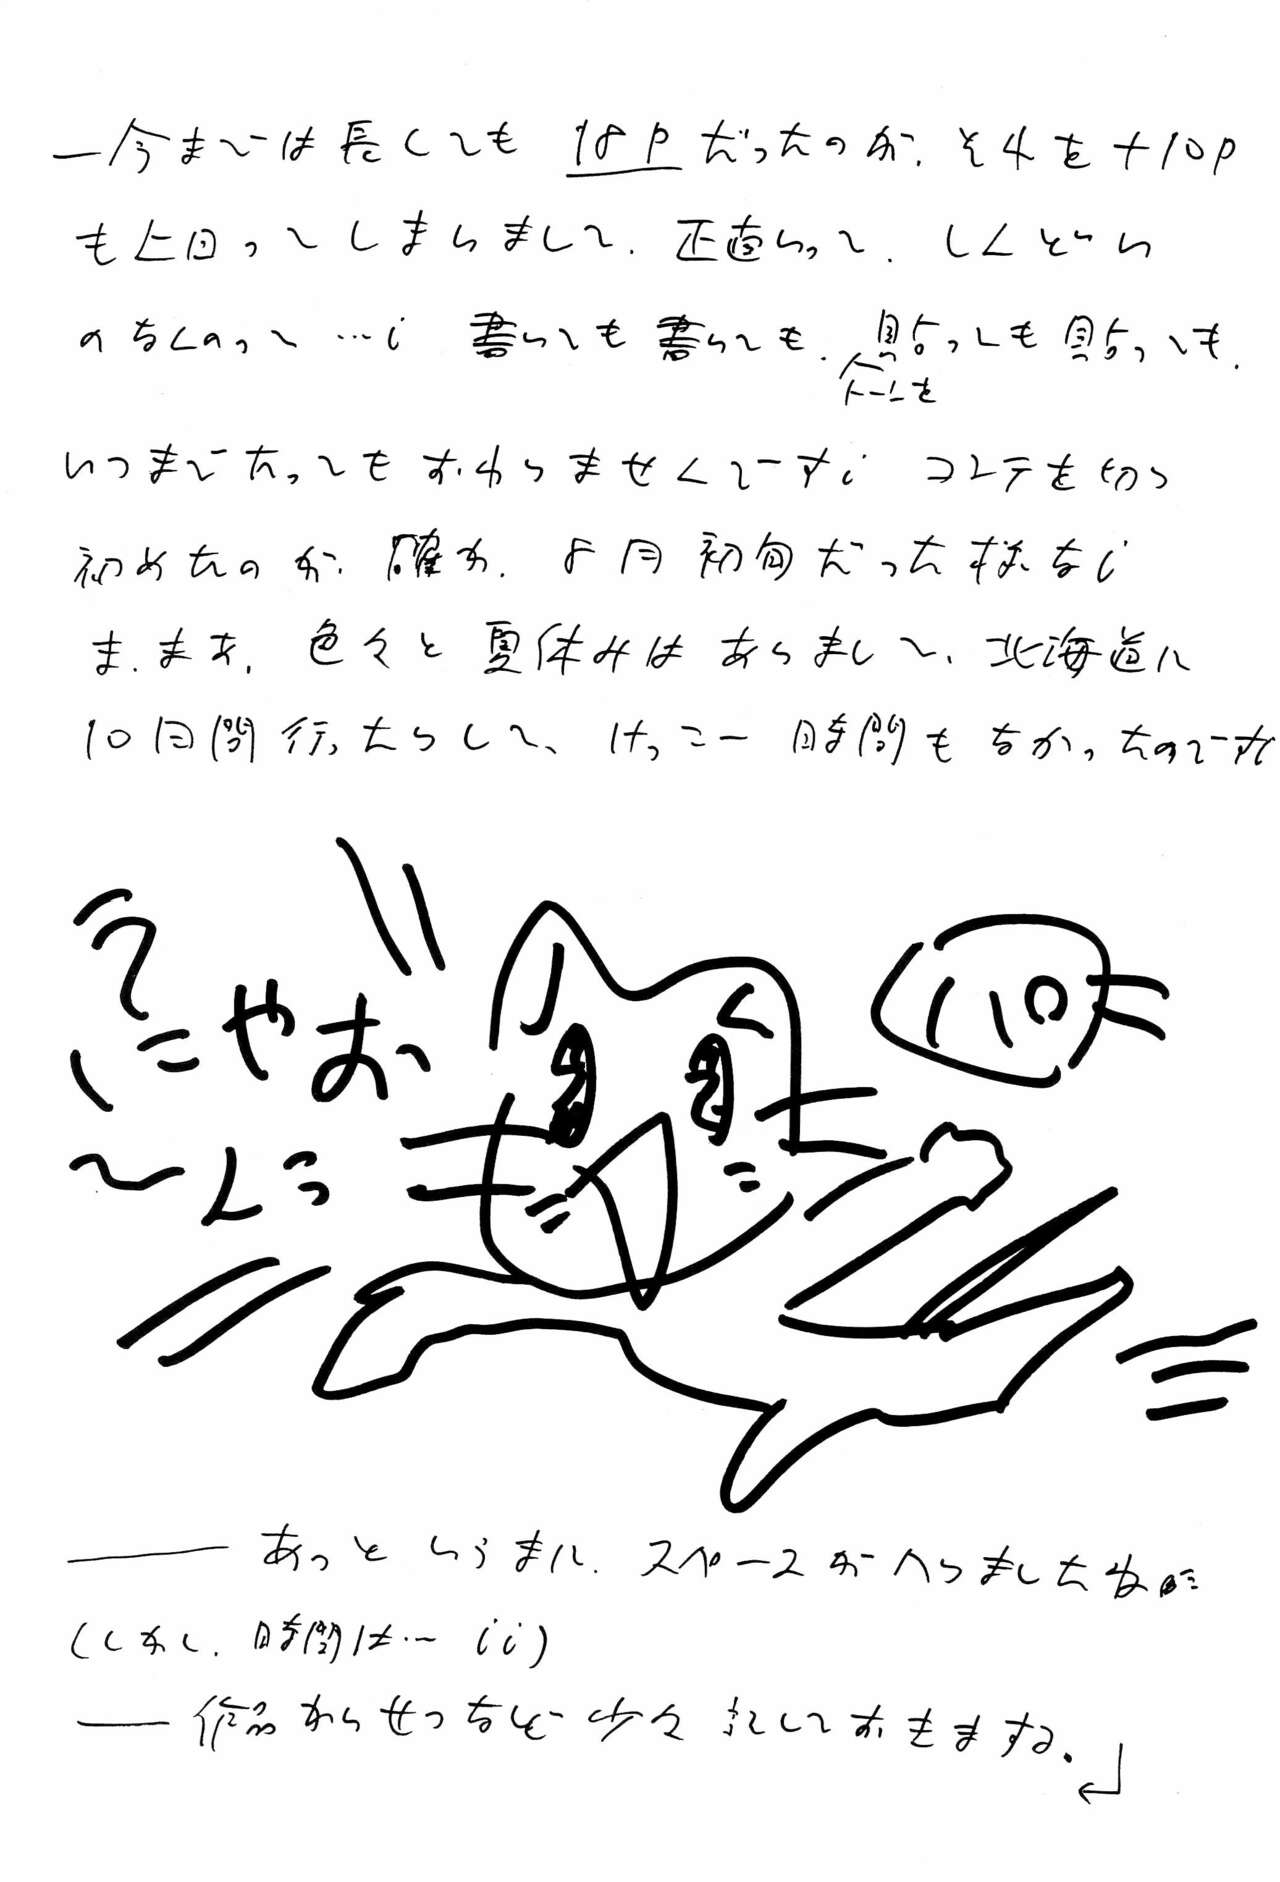 ―今までは長くても 18pだったのが、それを+10p
も上回ってしまいまして、正直いって、しんどい
のなんのって…; 書いても書いても、貼っても貼っても、
トーンを
いつまでたってもおわりませんでーす; コンテを切り
初めたのが、確か、8月初旬だった様な;
ま、まあ、色々と夏休みはありまして、北海道に
10日間行ったりして、けっこー時間もなかったのでーす
にゃお
〜んっ
―― あっというまに、スペースがへりましたな
(しかし、時間は… ;;)
―― 作品かいせつなど少々記しておきまする。